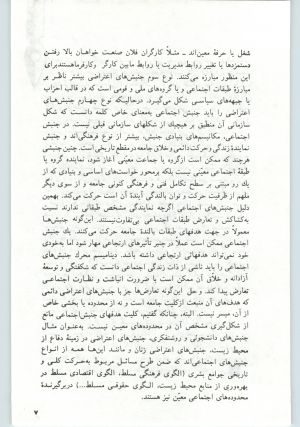 شغل یا حرفهٔ معین‌اند ـ مثلاً کارگران فلان صنعت خواهان بالا رفتن
دستمزدها یا تغییر روابط مدیریت یا روابط مابین کارگر وکارفرماهستندبرای
این منظور مبارزه می‌کنند. نوع سوم جنبش‌های اعتراضی بیشتر ناظر بر
مبارزهٔ طبقات اجتماعی و یا گروه‌های ملی و قومی است که در قالب احزاب
یا جبهه‌های سیاسی شکل می‌گیرد. درحالیکه نوع چهارم جنبش‌های
اعتراضی را باید جنبش اجتماعی به‌معنای خاص کلمه دانست که شکل
سازمانی آن منطبق بر هیچیک از شکلهای سازمانی قبلی نیست. در جنبش
اجتماعی، مکانیسم‌های بنیادی جنبش، بیشتر از نوع فرهنگی‌اند و جنبش
نمایندهٔ زندگی وحرکت دائمی و خلاق جامعه درمقطع تاریخی است. چنین جنبشی
هرچند که ممکن است ازگروه یا جماعت معینی آغاز شود، نماینده گروه یا
طبقهٔ اجتماعی معیّنی نیست بلکه برمحور خواست‌های اساسی و بنیادی که از
یك رو مبتنی بر سطح تکامل فنی و فرهنگی کنونی جامعه و از سوی دیگر
ملهم از ظرفیت حرکت و توان بالندگی آیندهٔ آن است، حرکت می‌کند. بهمین
دلیل جنبش‌های اجتماعی اگرچه نمایندگی مشخص طبقاتی ندارند نسبت
به‌کنش‌ها و تعارض طبقات اجتماعی بی‌تفاوت‌نیستند. این‌گونه جنبش‌ها
معمولاً در جهت هدفهای طبقات بالندهٔ جامعه حرکت می‌کنند. جنبش یك
اجتماعی ممکن است عملاً در جنبر تأثیرهای ارتجاعی مهار شود اما به‌خودی
خود نمی‌تواند هدفهائی ارتجاعی داشته باشد. دینامیسم محرك جنبش‌های
اجتماعی را باید ناشی از ذات زندگی اجتماعی دانست که شکفتگی و توسعهٔ
آزادانه و خلاق آن ممکن است با ضرورت انباشت و نظارت اجتماعی
تعارض پیدا کند. و حل این‌گونه تعارض‌ها جز با جنبش‌های اعتراضی‌ای
که هدف‌های آن منبعث ازکلیت جامعه است و نه از محدوده یا بخشی خاص
از آن، میسر نیست. البته، چنانکه گفتیم، کلیت هدفهای جنبش‌های اجتماعی مانع
از شکل‌گیری مشخص آن در محدوده‌های معین نیست. به‌عنوان مثال
جنبش‌های دانشجوئی و روشنفکری، جنبش‌های اعتراضی در زمینهٔ دفاع از
محیط زیست، جنبش‌های اعتراضی زنان و مانند این‌ها همه از انواع
جنبش‌های اجتماعی‌اند که ضمن طرح مسائل مربوط به‌حرکت کلی و
تاریخی جوامع بشری (الگوی فرهنگی مسلط، الگوی اقتصادی مسلط در
بهره‌وری از منابع محیط زیست، الگوی حقوقی مسلط...) دربرگیرندهٔ
محدوده‌های اجتماعی معیّن نیز هستند.
۷